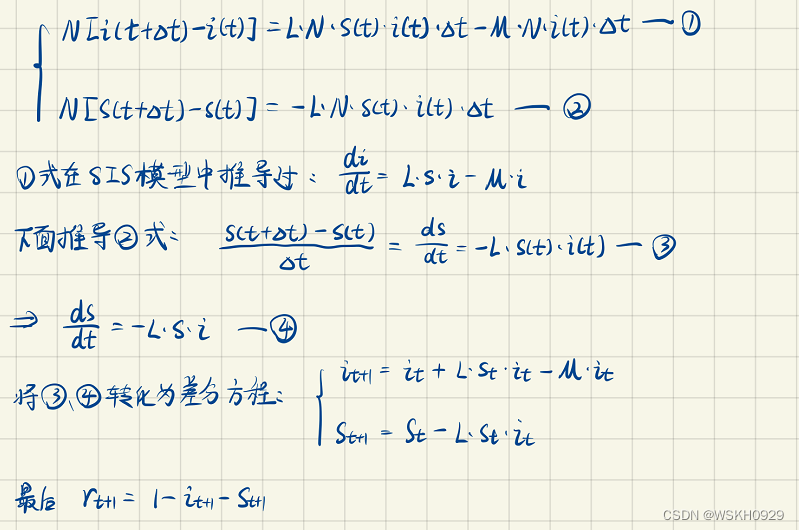 N[i(t+Δt)-i(t)] = L·N·S(t)·i(t)·Δt-M·N·i(t)·Δt — ①
N[S(t+Δt)-s(t)] = -L·N·s(t)·i(t)·Δt — ②
①式在SIS模型中推导过: di/dt = L·s·i-M·i
下面推导②式: S(t+Δt)-S(t)/Δt = ds/dt = -L·s(t)·i(t) — ③
⇒ ds/dt = -L·s·i — ④
将③、④转化为差分方程:
i_{t+1} = i_t + L·S_t·i_t - M·i_t
S_{t+1} = S_t - L·S_t·i_t
最后 r_{t+1} = 1-i_{t+1}-S_{t+1}
CSDN @WSKH0929